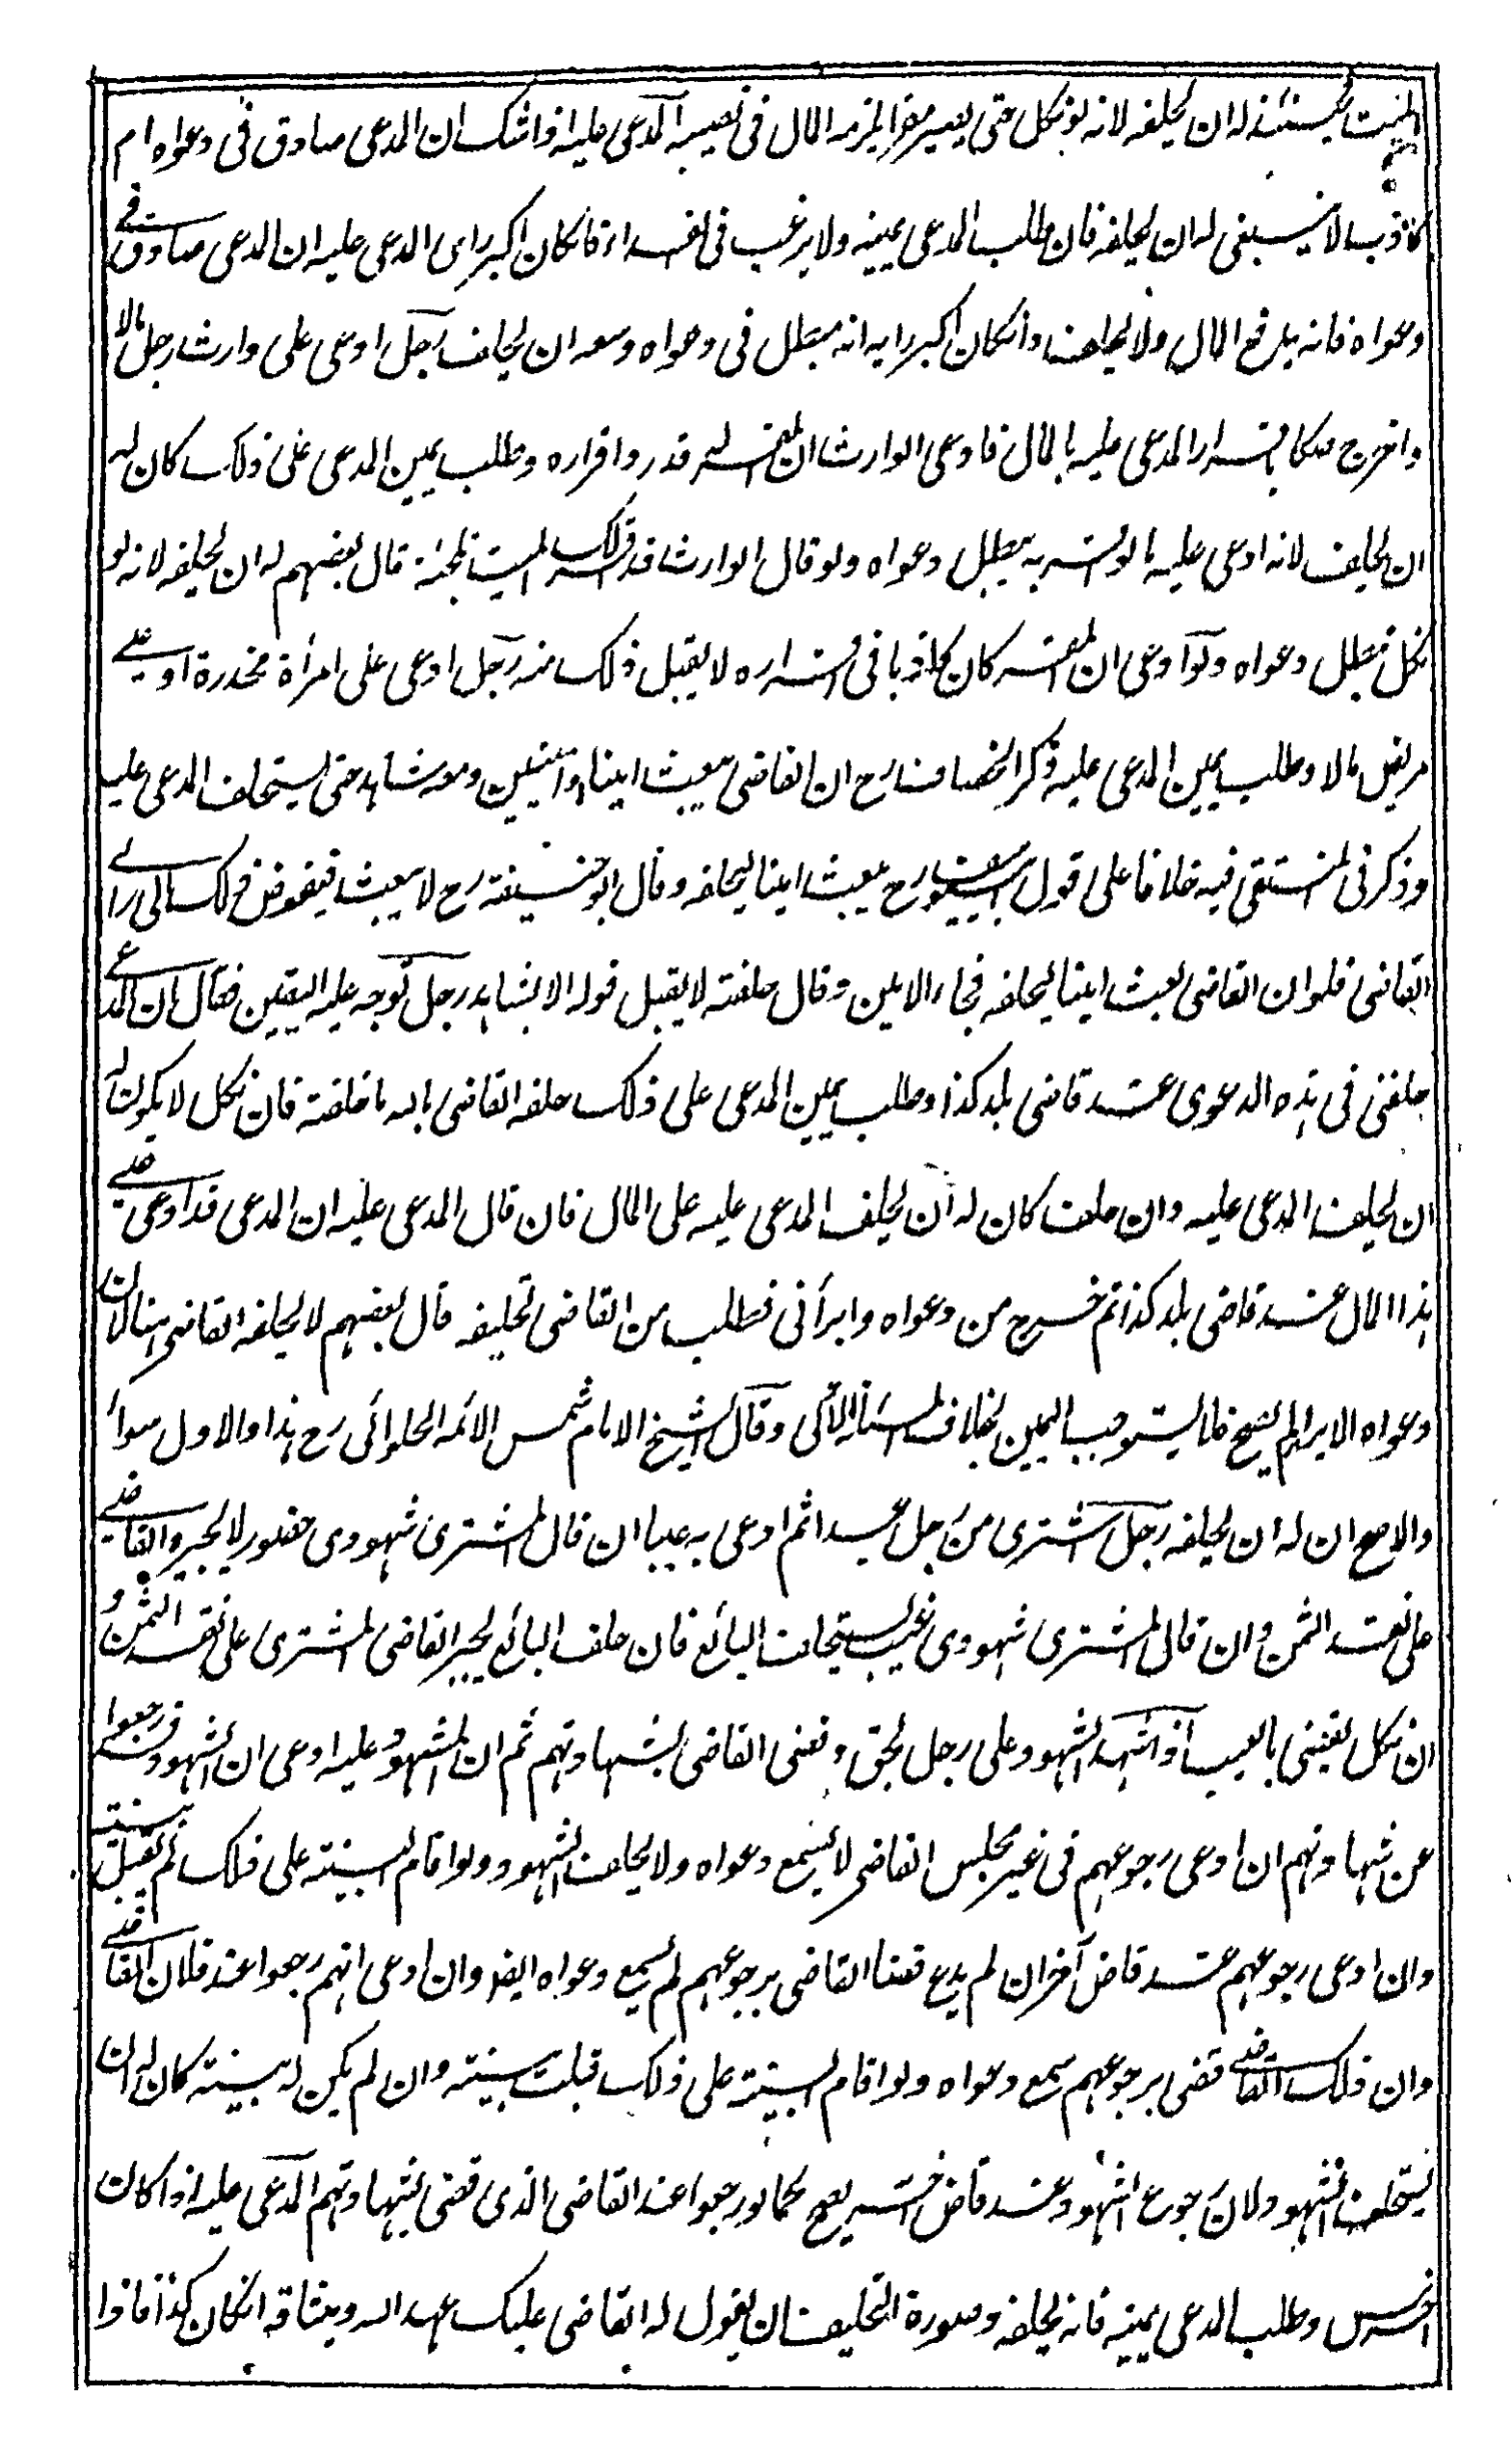 الميت فحينئذ له ان يحلفه لانه لو نكل حتى يصير مقرا لزمه المال فى نصيبه المدعى عليه اذا شك ان المدعى صادق فى دعواه ام
كاذب لا ينبغى له ان يحلف فان طلب المدعى يمينه ولا يرغب فى الفداء فانكان اكبر راى المدعى عليه ان المدعى صادق فى
دعواه فانه يدفع المال ولا يحلف وانكان اكبر رايه انه مبطل فى دعواه وسعه ان يحلف رجل ادعى على وارث رجل مالا
واخرج صكا باقرار المدعى عليه بالمال فادعى الوارث ان المقر له قد رد اقراره وطلب يمين المدعى على ذلك كان له
ان يحلف لانه ادعى عليه ما لو اقر به يبطل دعواه ولو قال الوارث قد اقر لك الميت تلجئة قال بعضهم له ان يحلفه لانه لو
نكل تبطل دعواه ولو ادعى ان المقر كان كاذبا فى اقراره لا يقبل ذلك منه رجل ادعى على امرأة مخدرة او على
مريض مالا وطلب يمين المدعى عليه ذكر الخصاف رح ان القاضى يبعث امينا او امينين ومعه شاهد حتى يستحلف المدعى عليه
وذكر فى المنتقى فيه خلافا على قول ابى يوسف رح يبعث امينا ليحلفه وقال ابو حنيفة رح لا يبعث فيفوض ذلك الى راى
القاضى فلو ان القاضى بعث امينا ليحلفه فجاء الامين وقال حلفته لا يقبل قوله الا بشاهد رجل توجه عليه اليمين فقال ان المدعى
حلفنى فى هذه الدعوى عند قاضى بلد كذا وطلب يمين المدعى على ذلك حلفه القاضى بالله ما حلفته فان نكل لا يكون له
ان يحلف المدعى عليه وان حلف كان له ان يحلف المدعى عليه على المال فان قال المدعى عليه ان المدعى قد ادعى على
هذا المال عند قاضى بلد كذا ثم خرج من دعواه وابرأنى فطلب من القاضى تحليفه قال بعضهم لا يحلفه القاضى هنا لان
دعواه الابراء لم يصح فلا يستوجب اليمين بخلاف المسئلة الاولى وقال الشيخ الامام شمس الائمه الحلوائى رح هذا والاول سواء
والاصح ان له ان يحلفه رجل اشترى من رجل عبدا ثم ادعى به عيبا ان قال المشترى شهودى حضور لا يجبره القاضى
على نقد الثمن وان قال المشترى شهودى غيب يستحلف البائع فان حلف البائع يجبر القاضى المشترى على نقد الثمن و
ان نكل يقضى بالعيب اذا شهد الشهود على رجل بحق وقضى القاضى بشهادتهم ثم ان المشهود عليه ادعى ان الشهود رجعوا
عن شهادتهم ان ادعى رجوعهم فى غير مجلس القاضى لا يسمع دعواه ولا يحلف الشهود ولو اقام البينة على ذلك لم تقبل بينته
وان ادعى رجوعهم عند قاض آخر ان لم يدع قضاء القاضى برجوعهم لم يسمع دعواه ايضا وان ادعى انهم رجعوا عند فلان القاضى
وان ذلك القاضى قضى برجوعهم سمع دعواه ولو اقام البينة على ذلك قبلت بينته وان لم يكن له بينة كان له ان
يستحلف الشهود ولان رجوع الشهود عند قاض آخر يصح كما لو رجعوا عند القاضى الذى قضى بشهادتهم المدعى عليه اذا كان
اخرس وطلب المدعى يمينه فانه يحلفه وصورة التحليف ان يقول له القاضى عليك عهد الله وميثاقه انكان كذا فاذا